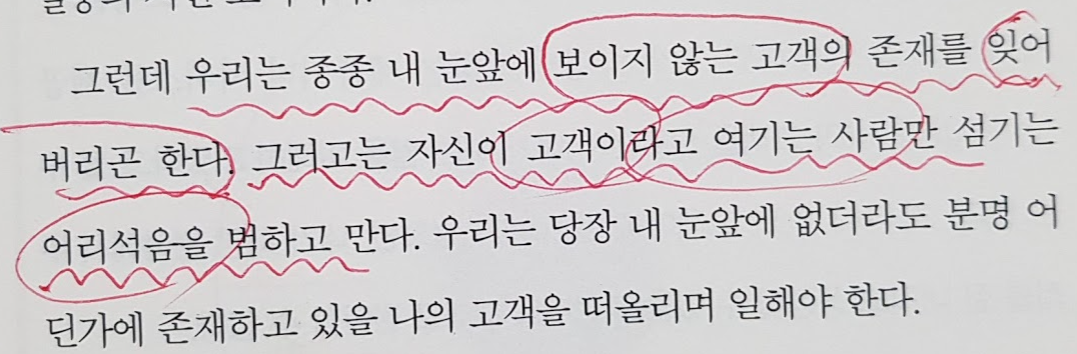 그런데 우리는 종종 내 눈앞에 보이지 않는 고객의 존재를 잊어
버리곤 한다. 그러고는 자신이 고객이라고 여기는 사람만 섬기는
어리석음을 범하고 만다. 우리는 당장 내 눈앞에 없더라도 분명 어
딘가에 존재하고 있을 나의 고객을 떠올리며 일해야 한다.